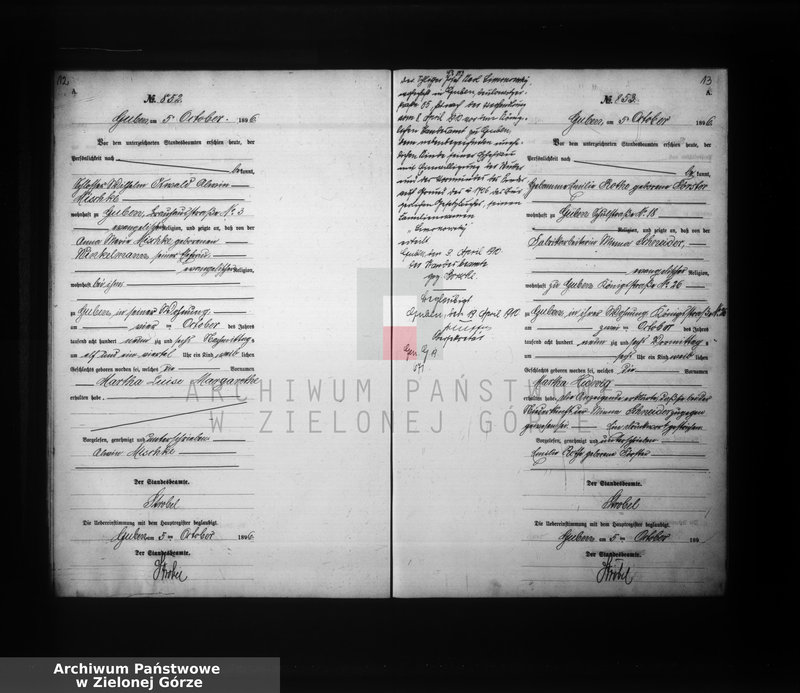 12
A.
№. 852.
Guben, am 5 October. 1896
Vor dem unterzeichneten Standesbeamten erschien heute, der
Persönlichkeit nach
be kannt,
Schlosser Wilhelm Ewald Alwin
Mischke
wohnhaft zu Guben, № 3
evangelischer Religion, und zeigte an, daß von der
Anna Marie Mischke geborenen
Winkelmann, seiner Ehefrau
evangelischer Religion,
wohnhaft bei ihm
zu Guben, in seiner Wohnung
am vier ten October des Jahres
tausend acht hundert neunzig und sechs Nachmittags
um elf und ein viertel Uhr ein Kind weib lichen
Geschlechts geboren worden sei, welches die Vornamen
Martha Luise Margarethe
erhalten habe.
Vorgelesen, genehmigt und unterschrieben
Alwin Mischke
Der Standesbeamte.
Strobel
Die Uebereinstimmung mit dem Hauptregister beglaubigt.
Guben, am 5 ten October 1896
Der Standesbeamte.
Strobel
Der Karl
in Guben,
vom 8 April 1910 vor dem König-
lichen Standesamt zu Guben,
dem nebenbezeichneten unehe-
lichen Kinde seiner Ehefrau
mit Einwilligung des Kindes
und der Vormundes des Kindes
auf Grund des § 1706 des Bür-
gerlichen Gesetzbuches, seinen
Familiennamen
erteilt
Guben, den 9 April 1910
Der Standesbeamte
gez.
Beglaubigt
Guben, den April 1910
13
A.
№. 853.
Guben, am 5 October 1896
Vor dem unterzeichneten Standesbeamten erschien heute, der
Persönlichkeit nach
be kannt,
Hebamme Emilie Rothe geborene Förster
wohnhaft zu Guben Schulstraße № 18
Religion, und zeigte an, daß von der
Fabrikarbeiterin Minna Schneider,
evangelischer Religion,
wohnhaft zu Guben Königstraße № 26
zu Guben, in ihrer Wohnung Königstraße № 26
am zwei ten October des Jahres
tausend acht hundert neunzig und sechs Vormittags
um sechs Uhr ein Kind weib lichen
Geschlechts geboren worden sei, welches die Vornamen
Martha Hedwig
erhalten habe. Die Anzeigende erklärte, daß sie bei der
Niederkunft der Minna Schneider zugegen
gewesen sei. Ein Druckwort gestrichen
Vorgelesen, genehmigt und unterschrieben
Emilie Rothe geborene Förster
Der Standesbeamte.
Strobel
Die Uebereinstimmung mit dem Hauptregister beglaubigt.
Guben am 5 ten October 189
Der Standesbeamte.
Strobel
ARCHIWUM PAŃSTWOWE
W ZIELONEJ GÓRZE
Archiwum Państwowe
w Zielonej Górze